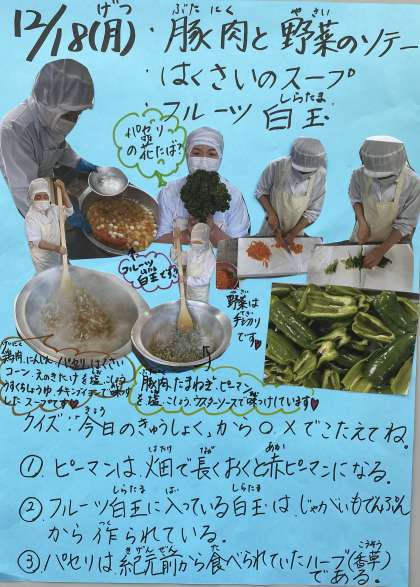 12/18(月)・豚肉と野菜のソテー
・はくさいのスープ
・フルーツ白玉
パセリの花たば？
フルーツ白玉です
野菜は
手切り
です♥
鶏肉、にんじん、パセリ、はくさい
コーン、えのきたけを塩、こしょう
うすくちしょうゆ、チキンブイヨンで味つけ
したスープです♥
豚肉、たまねぎ、ピーマン
を塩こしょう、ウスターソースで味つけしています♥
クイズ：今日のきゅうしょく、から○×でこたえてね。
①ピーマンは、畑で長くおくと赤ピーマンになる。
②フルーツ白玉に入っている白玉は、じゃがいもでんぷん
から作られている。
③パセリは紀元前から食べられていたハーブ(香草)
である。